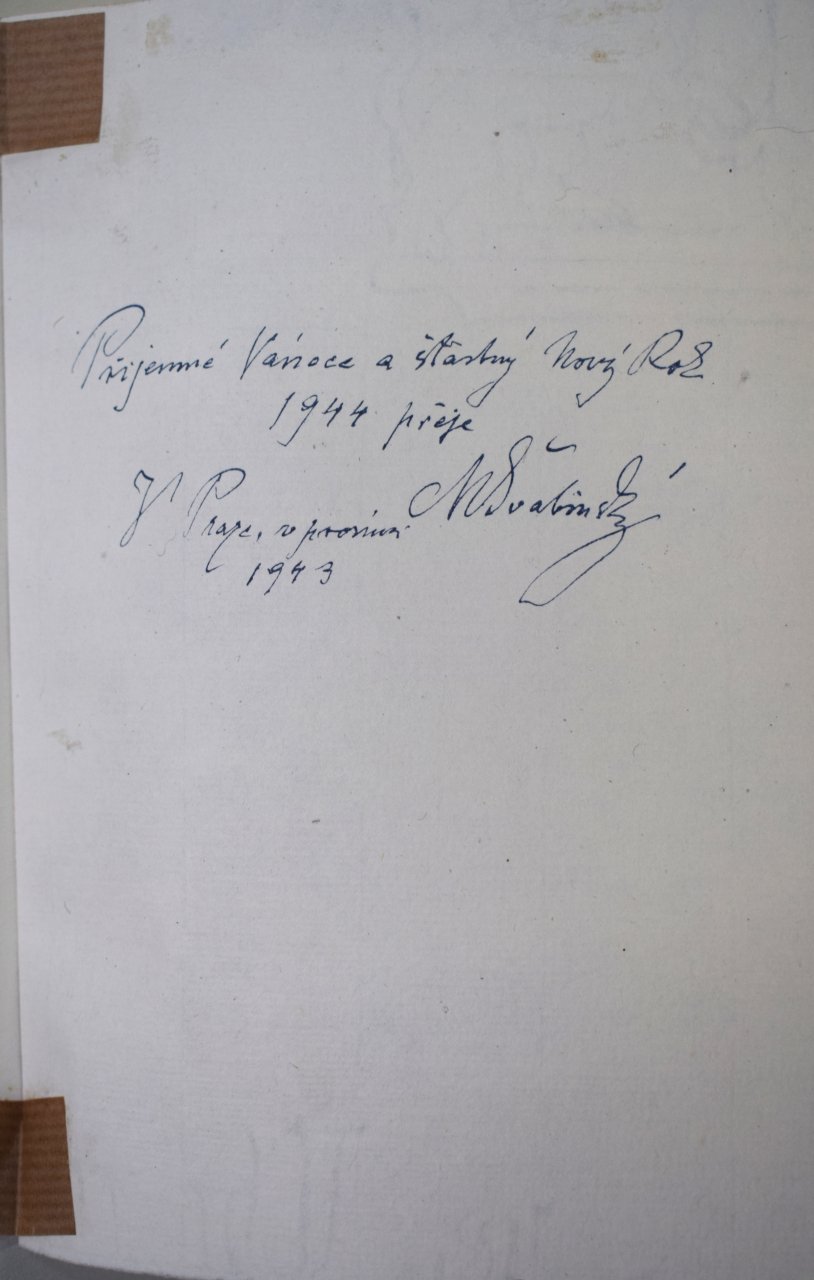 Příjemné Vánoce a šťastný Nový Rok
1944 přeje
V Praze, v prosinci MŠvabinský
1943